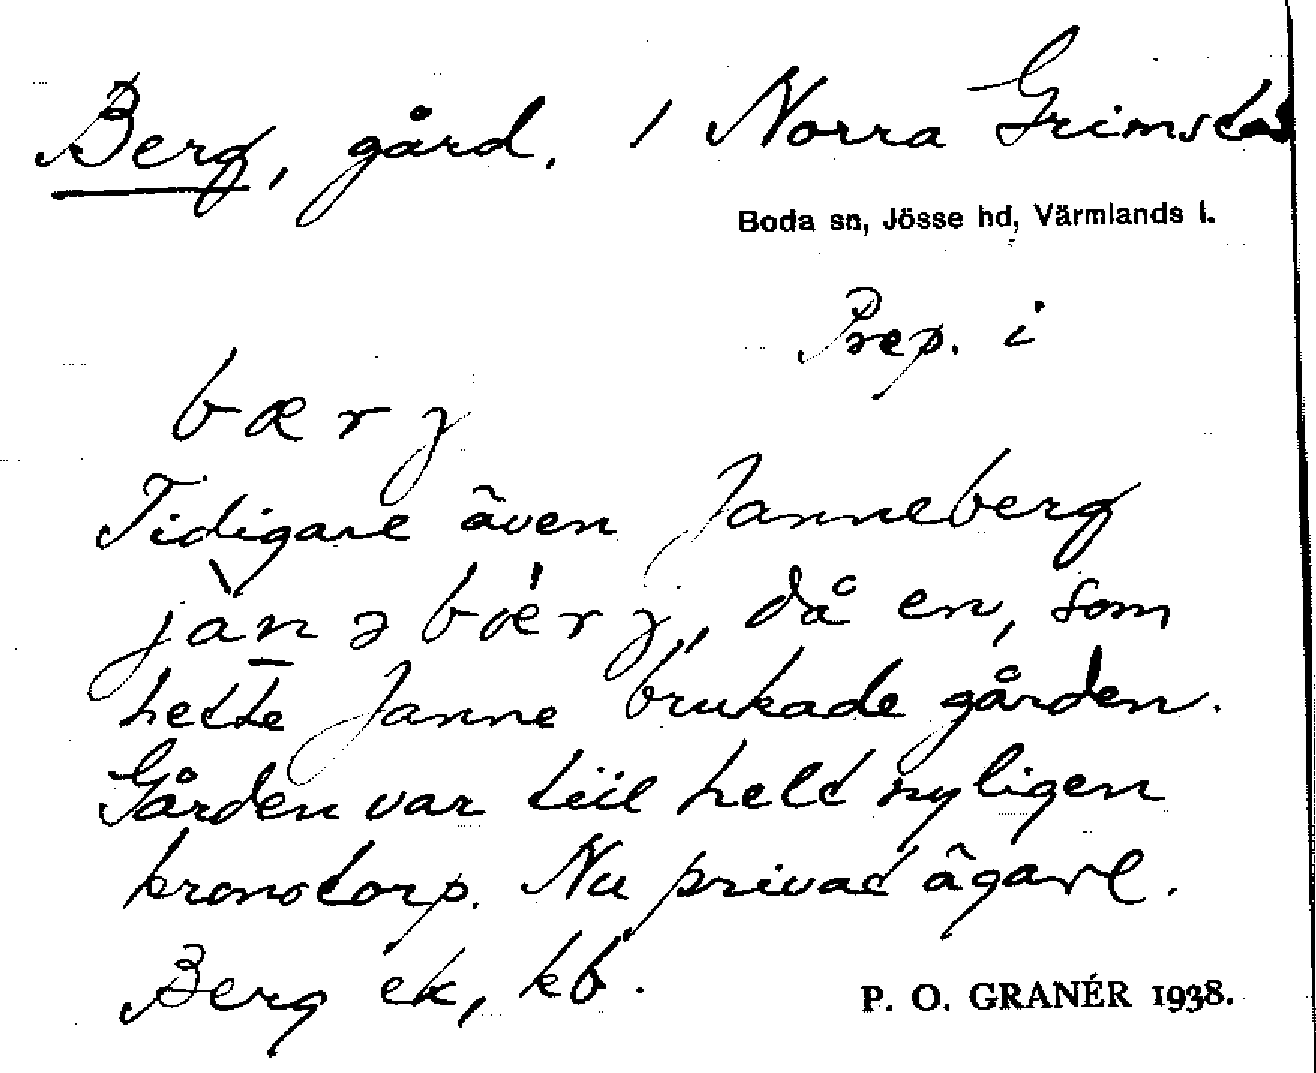 Berg, gård. / Norra Grimstad
Boda sn, Jösse hd, Värmlands l.
Prep. i
bærj
Tidigare även Janneberg
jànəbǽrj, då en, som
hette Janne brukade gården.
Gården var till helt nyligen
kronotorp. Nu privat ägare.
Berg ek, kb.
P. O. GRANÉR 1938.